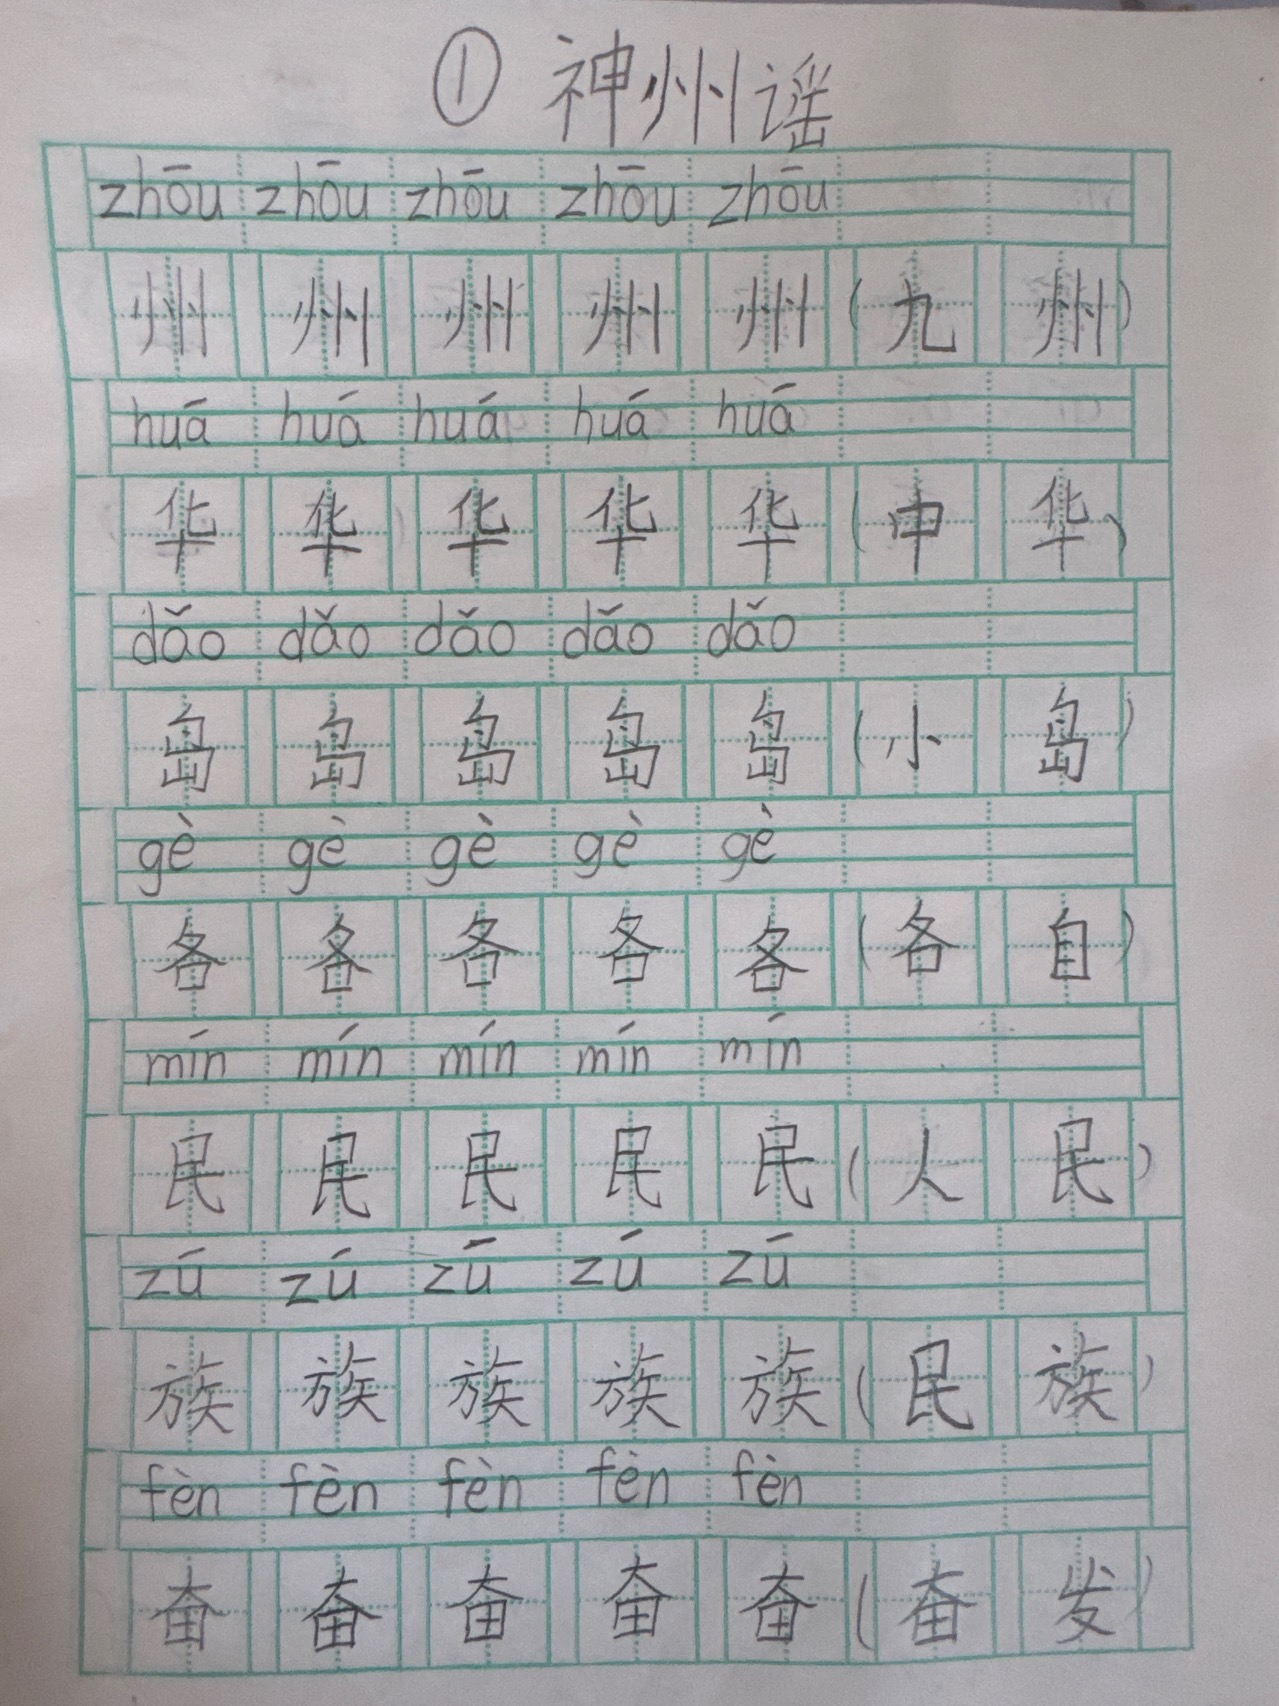 ① 神州谣
zhōu zhōu zhōu zhōu zhōu
州 州 州 州 州 (九 州)
huá huá huá huá huá
华 华 华 华 华 (中 华)
dǎo dǎo dǎo dǎo dǎo
岛 岛 岛 岛 岛 (小 岛)
gè gè gè gè gè
各 各 各 各 各 (各 自)
mín mín mín mín mín
民 民 民 民 民 (人 民)
zú zú zú zú zú
族 族 族 族 族 (民 族)
fèn fèn fèn fèn fèn
奋 奋 奋 奋 奋 (奋 发)